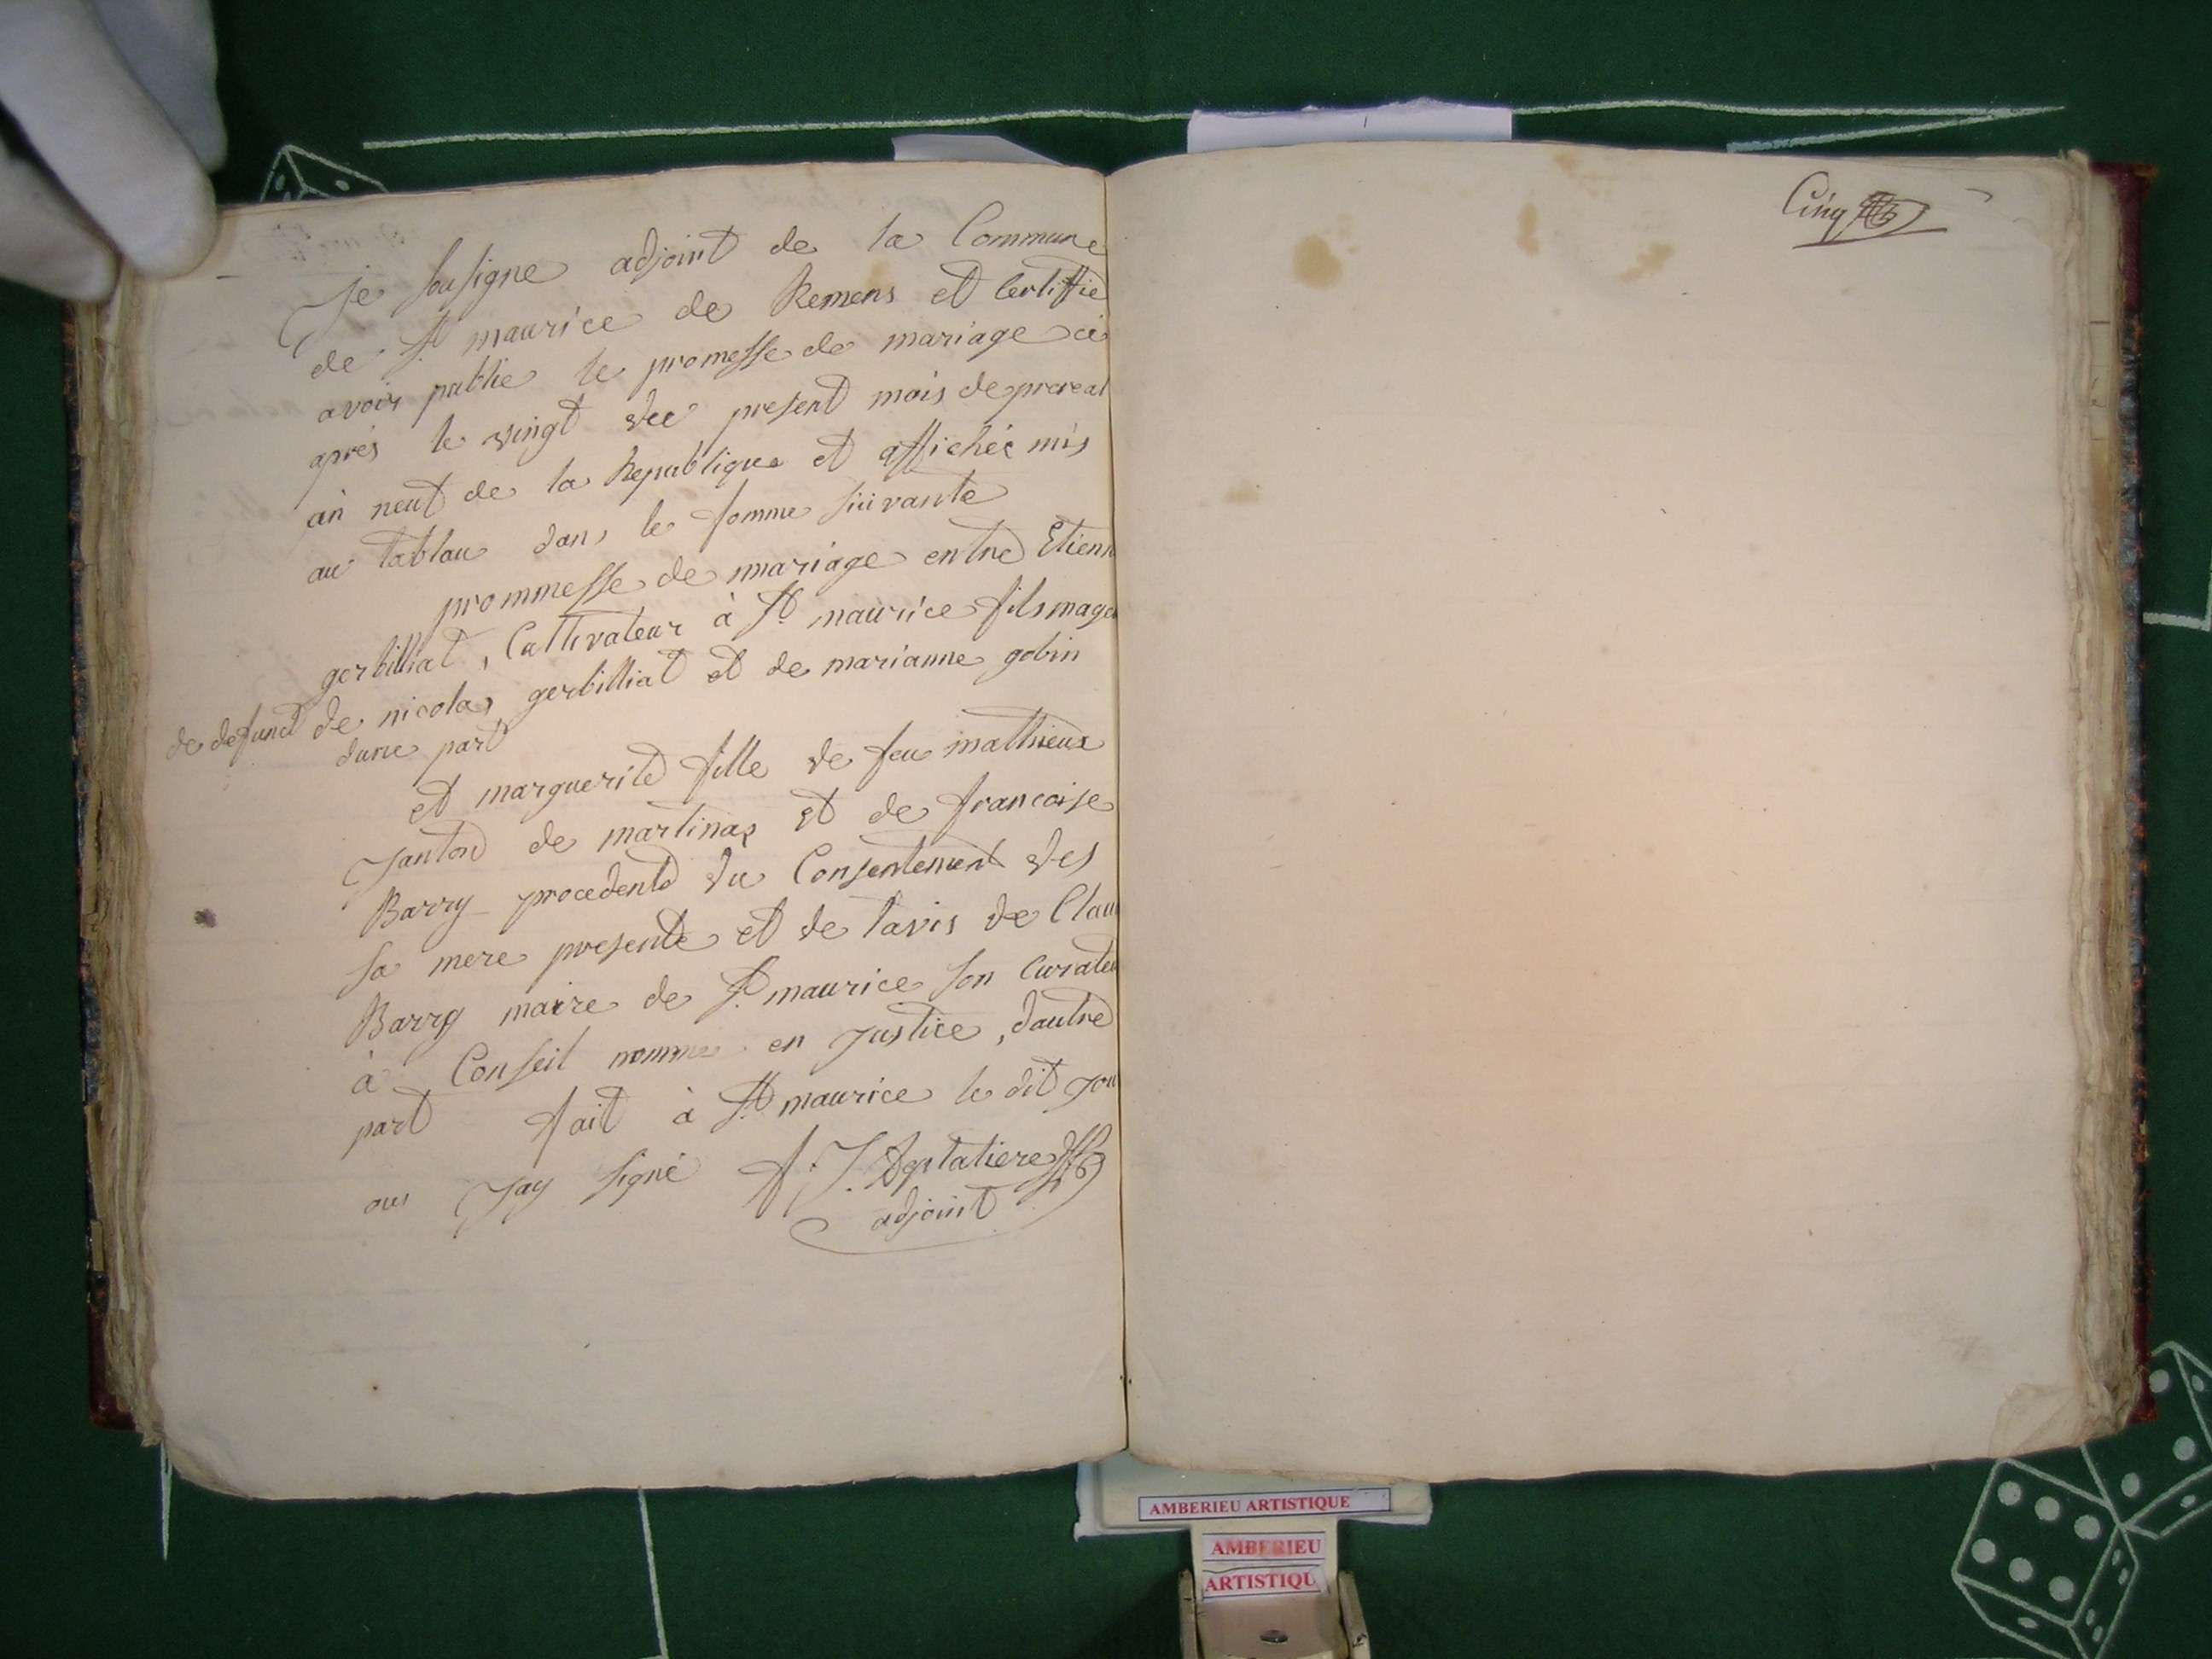 Je sousigne adjoint de la Commune
de St maurice de Remens et Certiffie
avoir publie le promesse de mariage ci
aprés le vingt du present mois de prereal
an neuf de la Republique et affichée mis
au tablau dans le fomme suivante
prommesse de mariage entre Etienn
gerbilliat, Cultivateur à St maurice fils mage
de defunct de nicolas gerbilliat et de marianne gobin
dune part
et marguerite fille de feu mathieux
Janton de martinas et de francoise
Barry procedente du Consentement des
sa mere presente et de lavis de Clau
Barry maire de St maurice son Curateu
à Conseil nomme en Justice, dautre
part fait à St maurice le dit jou
ou Jay signé
adjoint
Cinq
AMBERIEU ARTISTIQUE
AMBERIEU
ARTISTIQU